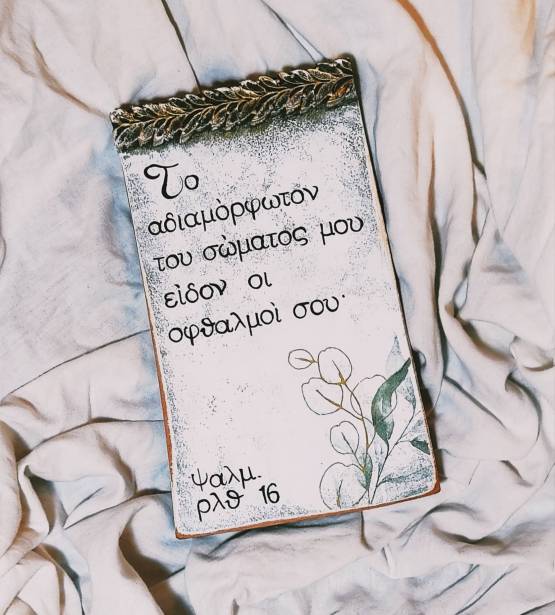 Το
αδιαμὸρφωτον
του σὼματος μου
εὶδον οι
οφθαλμοὶ σου·
ψαλμ.
ρλθ 16